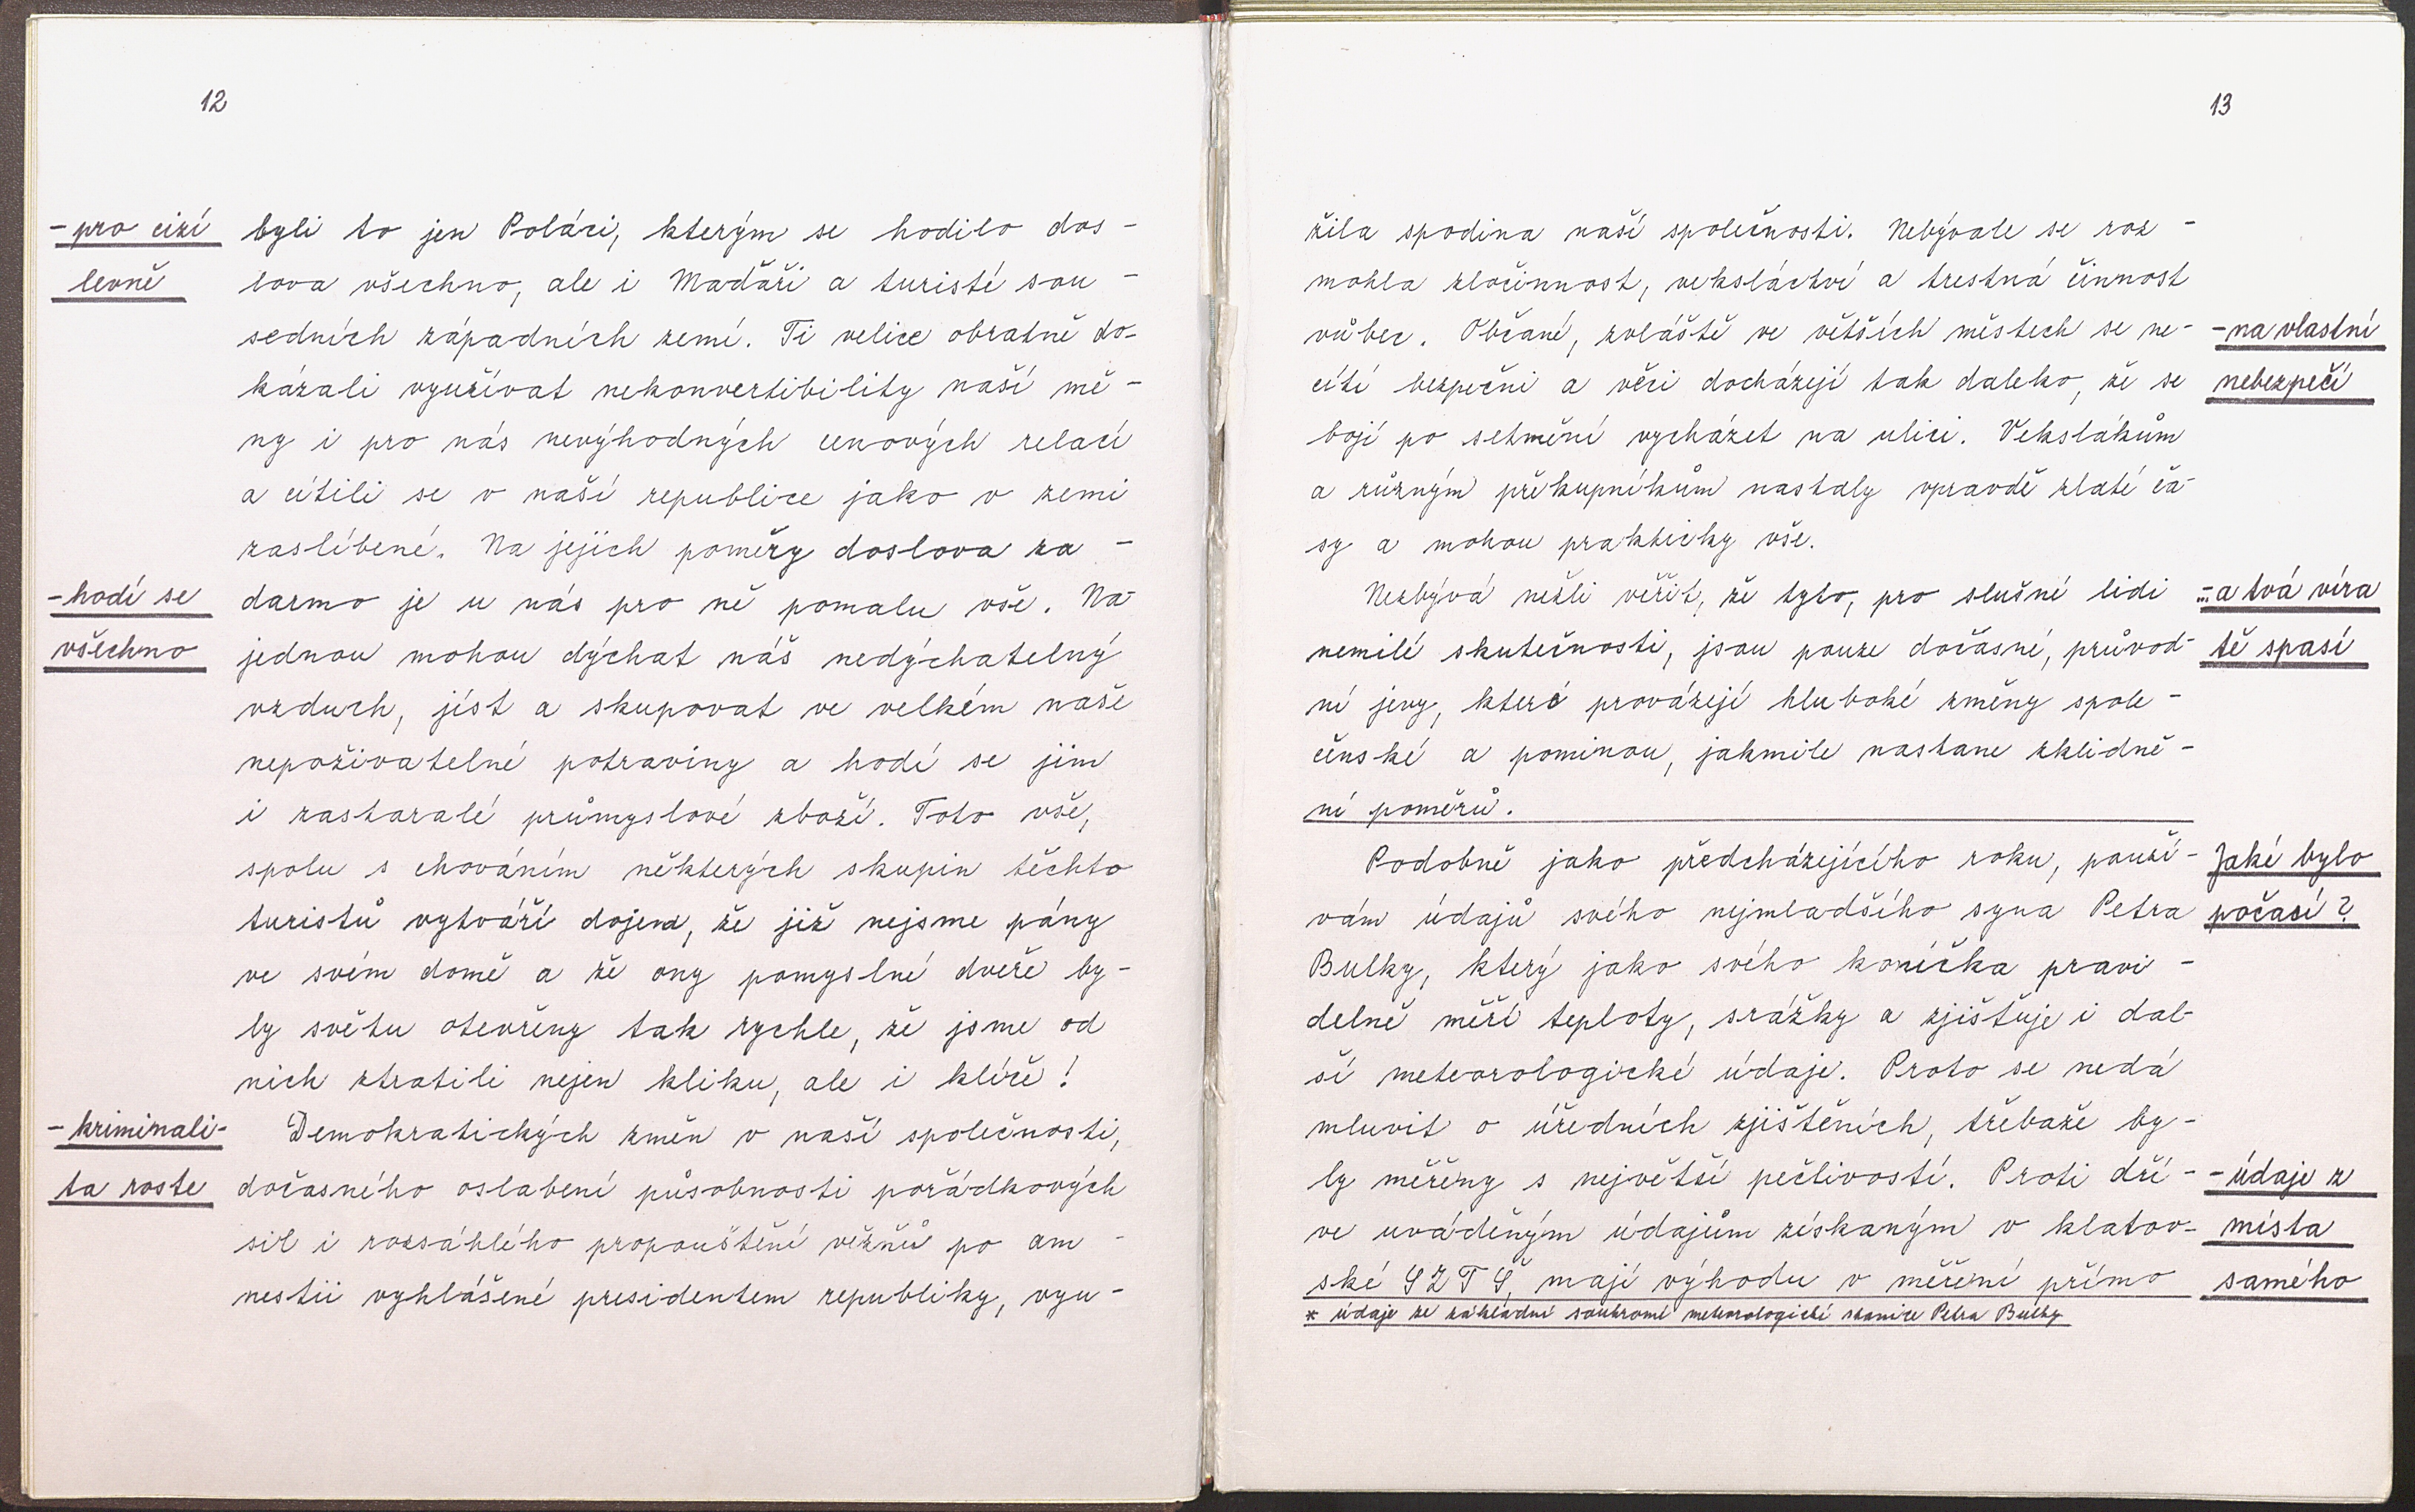 12
- pro cizí
levně
byli to jen Poláci, kterým se hodilo dos-
lova všechno, ale i Maďaři a turisté sou-
sedních západních zemí. Ti velice obratně do-
kázali využívat nekonvertibility naší mě-
ny i pro nás nevýhodných cenových relací
a cítili se v naší republice jako v zemi
zaslíbené. Na jejich poměry doslova za-
- hodí se
všechno
darmo je u nás pro ně pomalu vše. Na-
jednou mohou dýchat náš nedýchatelný
vzduch, jíst a skupovat ve velkém naše
nepoživatelné potraviny a hodí se jim
i zastaralé průmyslové zboží. Toto vše,
spolu s chováním některých skupin těchto
turistů vytváří dojem, že již nejsme pány
ve svém domě a že ony pomyslné dveře by-
ly světu otevřeny tak rychle, že jsme od
nich ztratili nejen kliku, ale i klíče!
- kriminali-
ta roste
Demokratických změn v naší společnosti,
dočasného oslabení působnosti pořádkových
sil i rozsáhlého propouštění vězňů po am-
nestii vyhlášené presidentem republiky, vyu-
13
žila spodina naší společnosti. Nebývale se roz-
mohla zločinnost, veksláctví a trestná činnost
vůbec. Občané, zvláště ve větších městech se ne-
cítí bezpečni a věci docházejí tak daleko, že se
bojí po setmění vycházet na ulici. Vekslákům
a různým překupníkům nastaly vpravdě zlaté ča-
sy a mohou prakticky vše.
- na vlastní
nebezpečí
Nezbývá nežli věřit, že tyto, pro slušné lidi
nemilé skutečnosti, jsou pouze dočasné, průvod-
ní jevy, které provázejí hluboké změny spole-
čenské a pominou, jakmile nastane zklidně-
ní poměrů.
-...a tvá víra
tě spasí
Podobně jako předcházejícího roku, použí-
vám údajů svého nejmladšího syna Petra
Bulky, který jako svého koníčka pravi-
delně měří teploty, srážky a zjišťuje i dal-
ší meteorologické údaje. Proto se nedá
mluvit o úředních zjištěních, třebaže by-
ly měřeny s největší pečlivostí. Proti dří-
ve uváděným údajům získaným v klatov-
ské SZTŠ, mají výhodu v měření přímo
Jaké bylo
počasí?
- údaje z
místa
samého
* údaje ze základní soukromé meteorologické stanice Petra Bulky